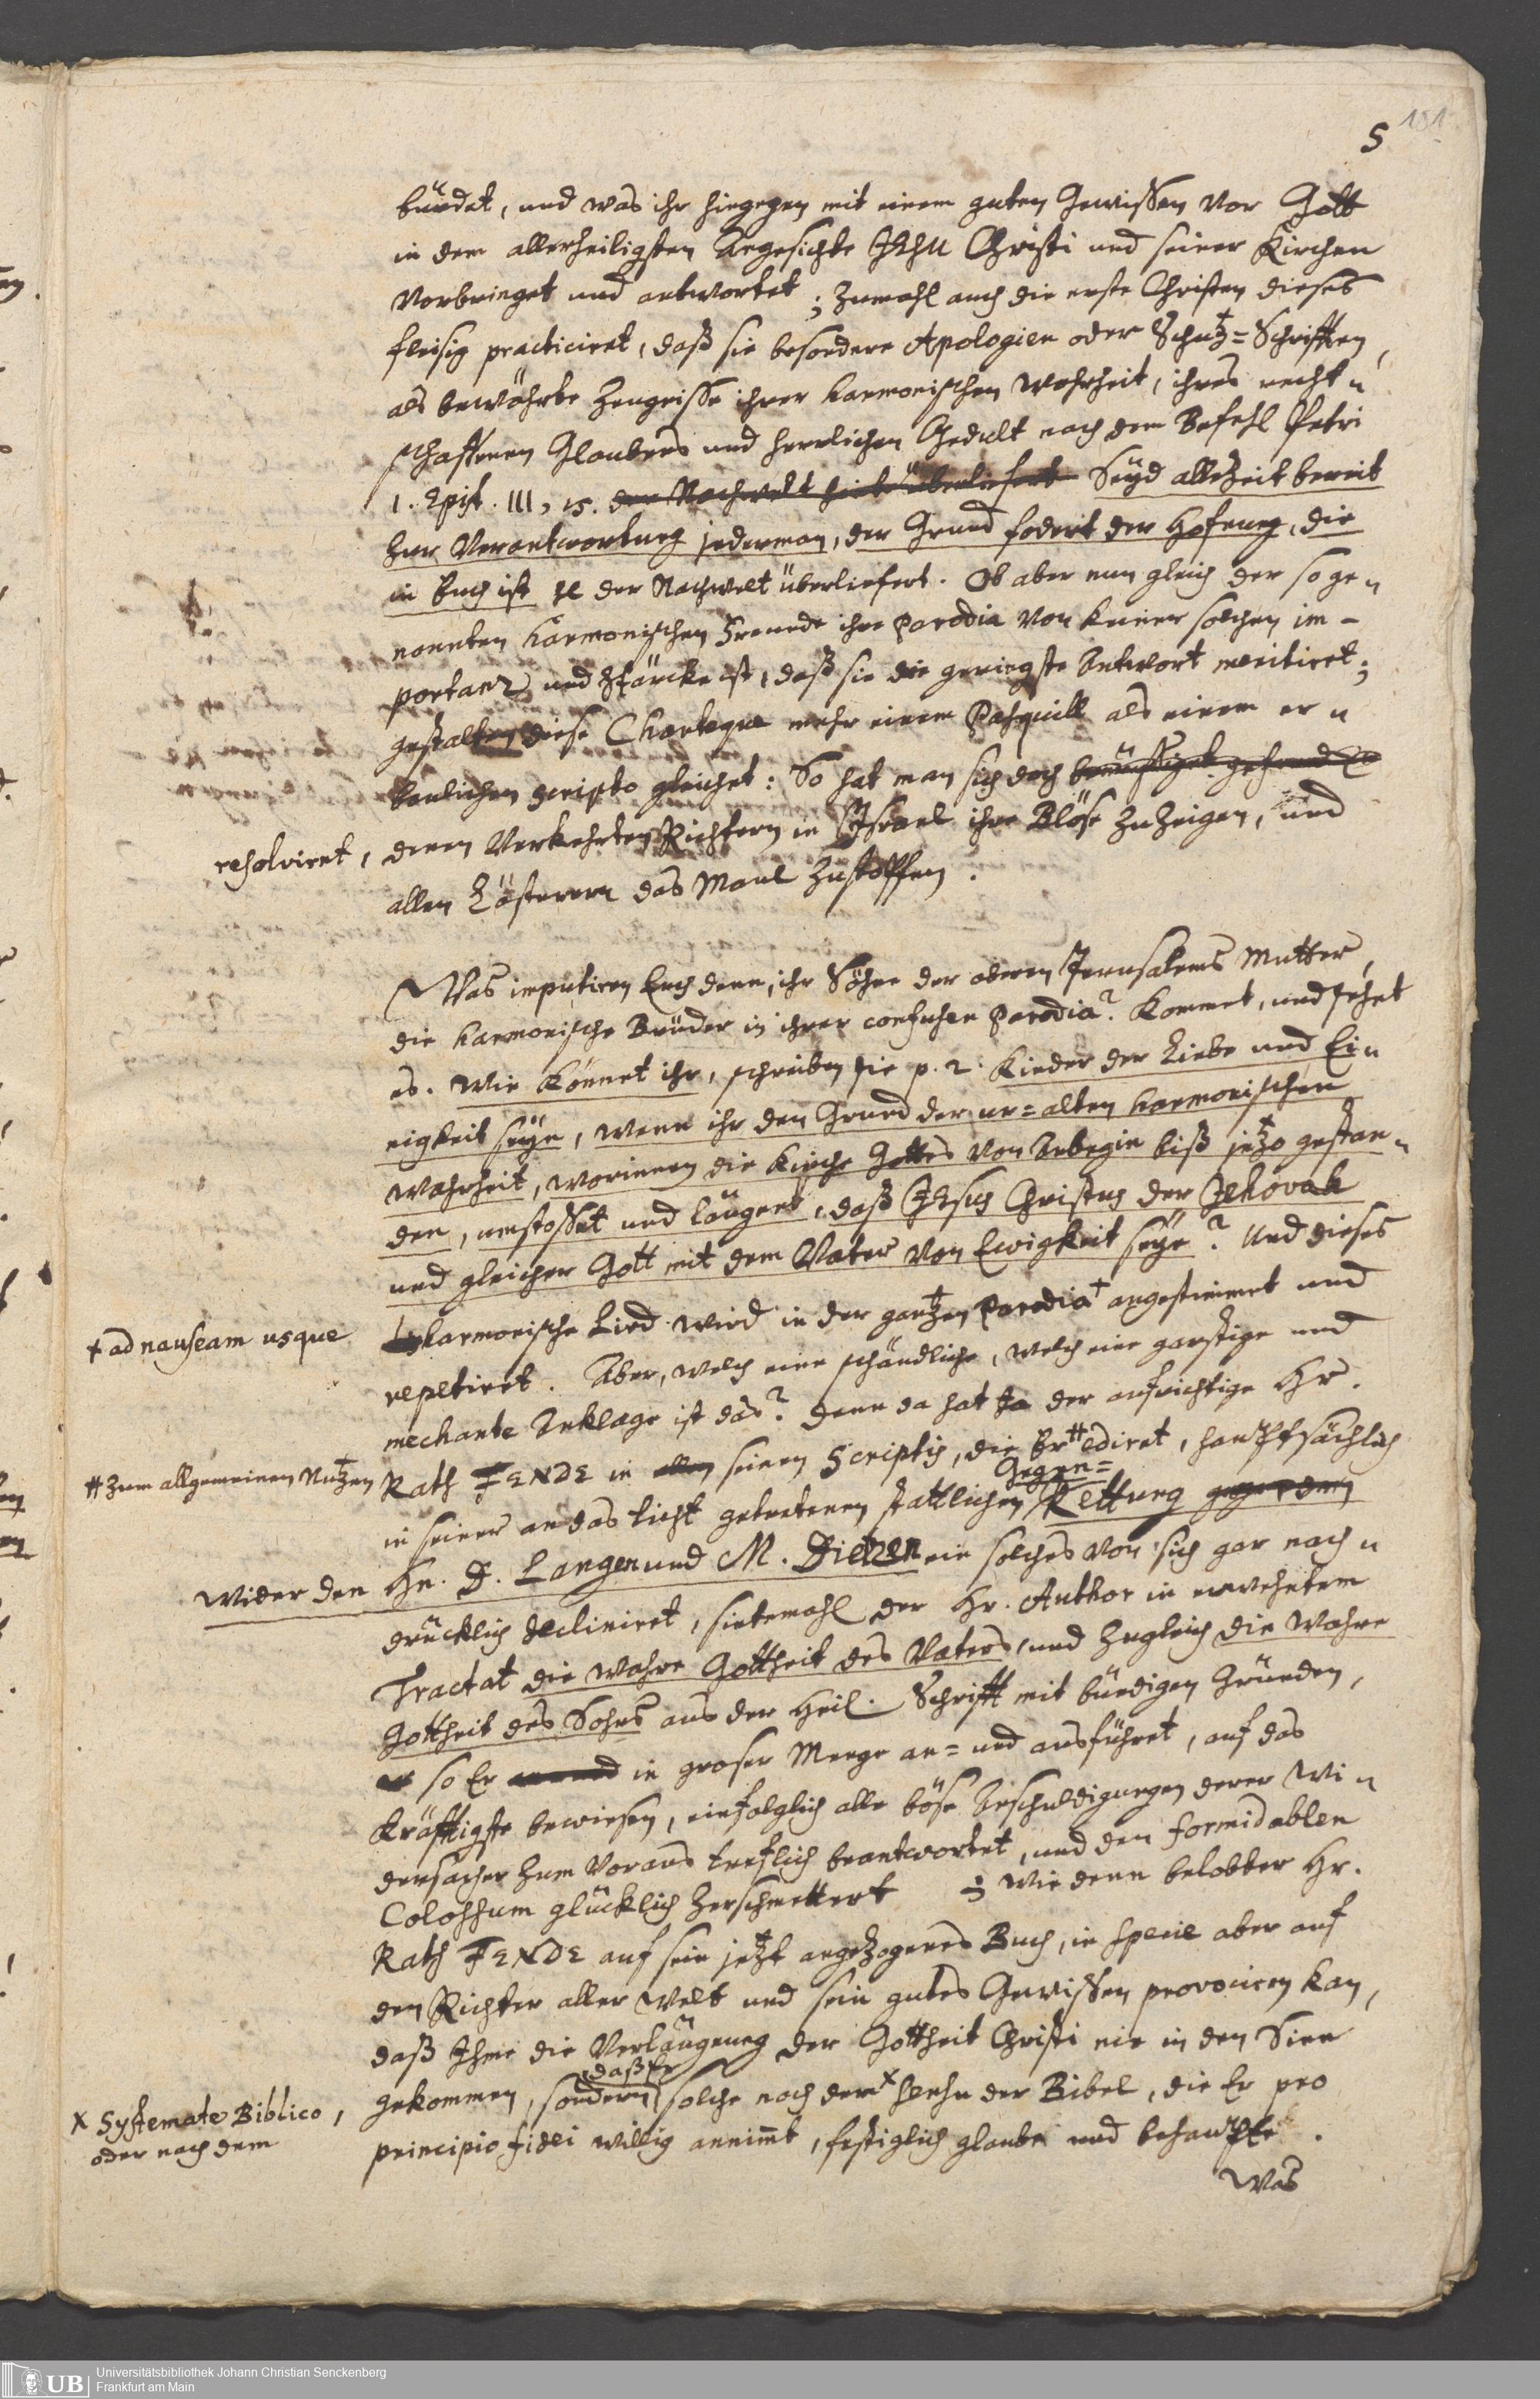 5 181
bürdet, und was ihr hingegen mit einem guten Gewissen vor Gott
in dem allerheiligsten Angesichte JEsu Christi und seiner Kirchen
vorbringet und antwortet; zumahl auch die erste Christen dieses
fleisig practiciret, daß sie besondere Apologien oder Schutz=Schrifften,
als bewährte Zeugnisse ihrer harmonischen Wahrheit, ihres recht„
schaffenen Glaubens und herrlichen Gedult nach dem Befehl Petri
1. Epist. III, 15. der Nachwelt überliefert Seyd allezeit bereit
zur Verantwortung jederman, der Grund fodert der Hofnung, die
in Euch ist der Nachwelt überliefert. Ob aber nun gleich der soge„
nannten harmonischen Freunde ihre Parodia von keiner solchen im-
portanz und Stärcke ist, daß sie die geringste Antwort meritiret;
gestalten diese Charteque mehr einem Pasquill als einem er„
baulichen scripto gleichet: So hat man sich doch
resolviret, denen verkehrten Richtern in Israel ihre Blöse zu zeigen, und
allen Lästerern das Maul zustopffen.
Was imputiren Euch denn, ihr Söhne der oberen Jerusalems Mutter,
die harmonische Brüder in ihrer confusen Parodia? Kommet, und sehet
es. Wie könnet ihr, schreiben sie p. 2. Kinder der Liebe und Ei„
nigkeit seyn, wenn ihr den Grund der ur=alten harmonischen
Wahrheit, worinnen die Kirche Gottes von Anbegin biß jetzo gestan„
den, umstosset und läugnet, daß JEsus Christus der Jehovah
und gleicher Gott mit dem Vater von Ewigkeit seye? Und dieses
harmonische Lied wird in der gantzen Parodia + angestimmet und
+ ad nauseam usque
repetiret. Aber, welch eine schändliche, welch eine garstige und
mechante Anklage ist das? Denn da hat ja der aufrichtige Hr.
Rath FENDE in allen seinen Scriptis, die Er # ediret, hauptsächlich
# zum allgemeinen Nutzen
in seiner an das Licht getretenen stattlichen Gegen= Rettung gegen den
wider den Hn. D. Langen und M. Dietzen ein solches von sich gar nach„
drücklich decliniret, sintemahl der Hr. Author in erwehntem
Tractat die wahre Gottheit des Vaters, und zugleich die wahre
Gottheit des Sohns aus der Heil. Schrifft mit bündigen Gründen,
so Er in groser Menge an= und ausführet, auf das
kräfftigste bewiesen, einfolglich alle böse Beschuldigungen derer Wi„
dersacher zum Voraus treflich beantwortet, und den formidablen
Colossum glücklich zerschmettert; wie denn belobter Hr.
Rath FENDE auf sein jetzt angezogenes Buch, in specie aber auf
den Richter aller Welt und sein gutes Gewissen provociren kan,
daß Ihme die Verläugnung der Gottheit Christi nie in den Sinn
gekommen, sondern, daß Er solche nach dem x sensu der Bibel, die Er pro
x Systemate Biblico,
oder nach dem
principio fidei willig annimt, festiglich glaube und behaupte.
Was
Universitätsbibliothek Johann Christian Senckenberg
Frankfurt am Main
UB